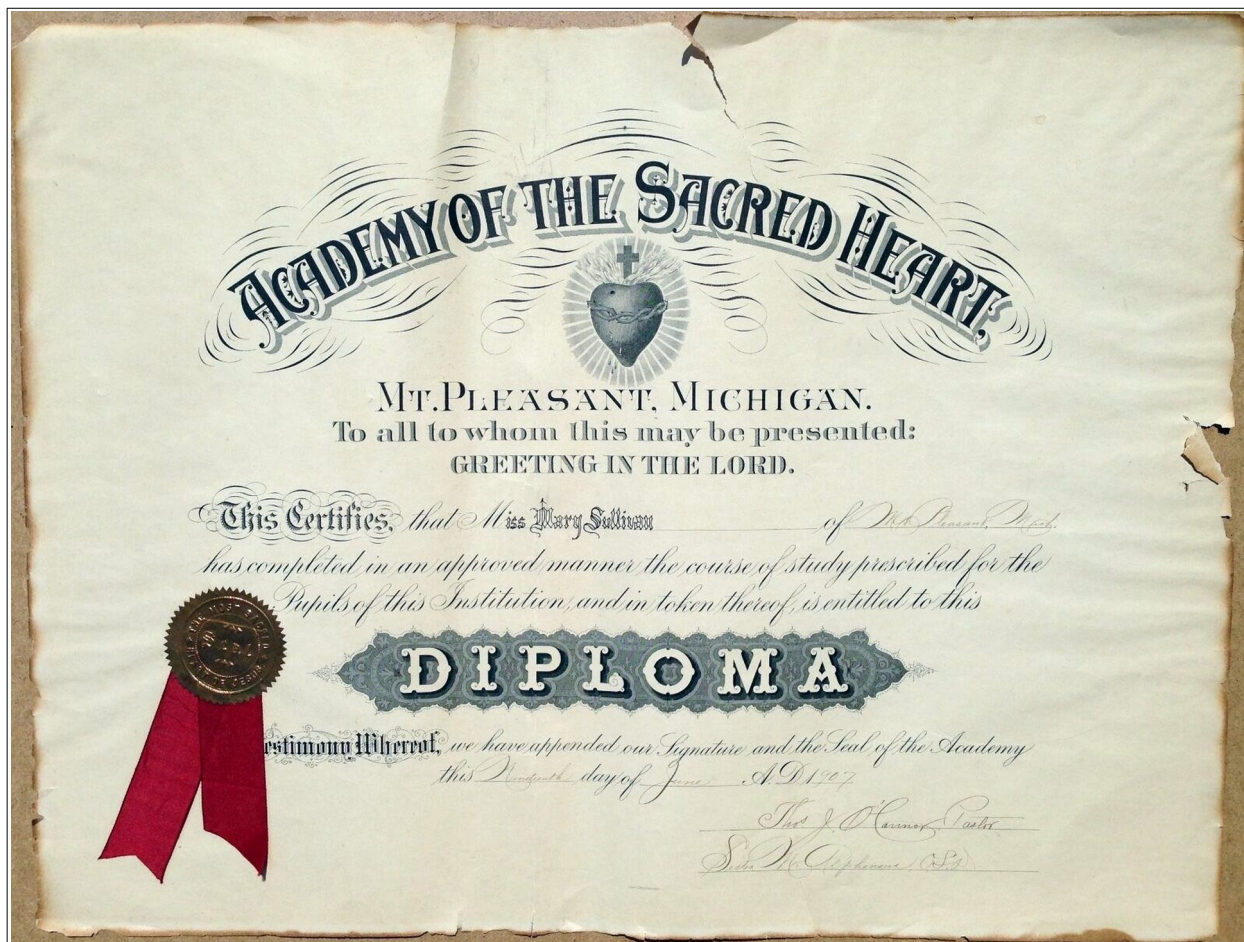 ACADEMY OF THE SACRED HEART,
MT. PLEASANT, MICHIGAN.
To all to whom this may be presented:
GREETING IN THE LORD.
This Certifies, that Miss Mary Sullivan of Mt. Pleasant, Mich.
has completed in an approved manner the course of study prescribed for the
Pupils of this Institution, and in token thereof, is entitled to this
DIPLOMA
estimony Whereof, we have appended our Signature and the Seal of the Academy
this Nineteenth day of June A.D. 1907
Thos J. O'Connor, Pastor
SEAL